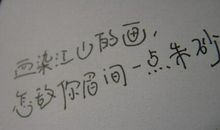 血染江山的画，
怎敌你眉间一点朱砂